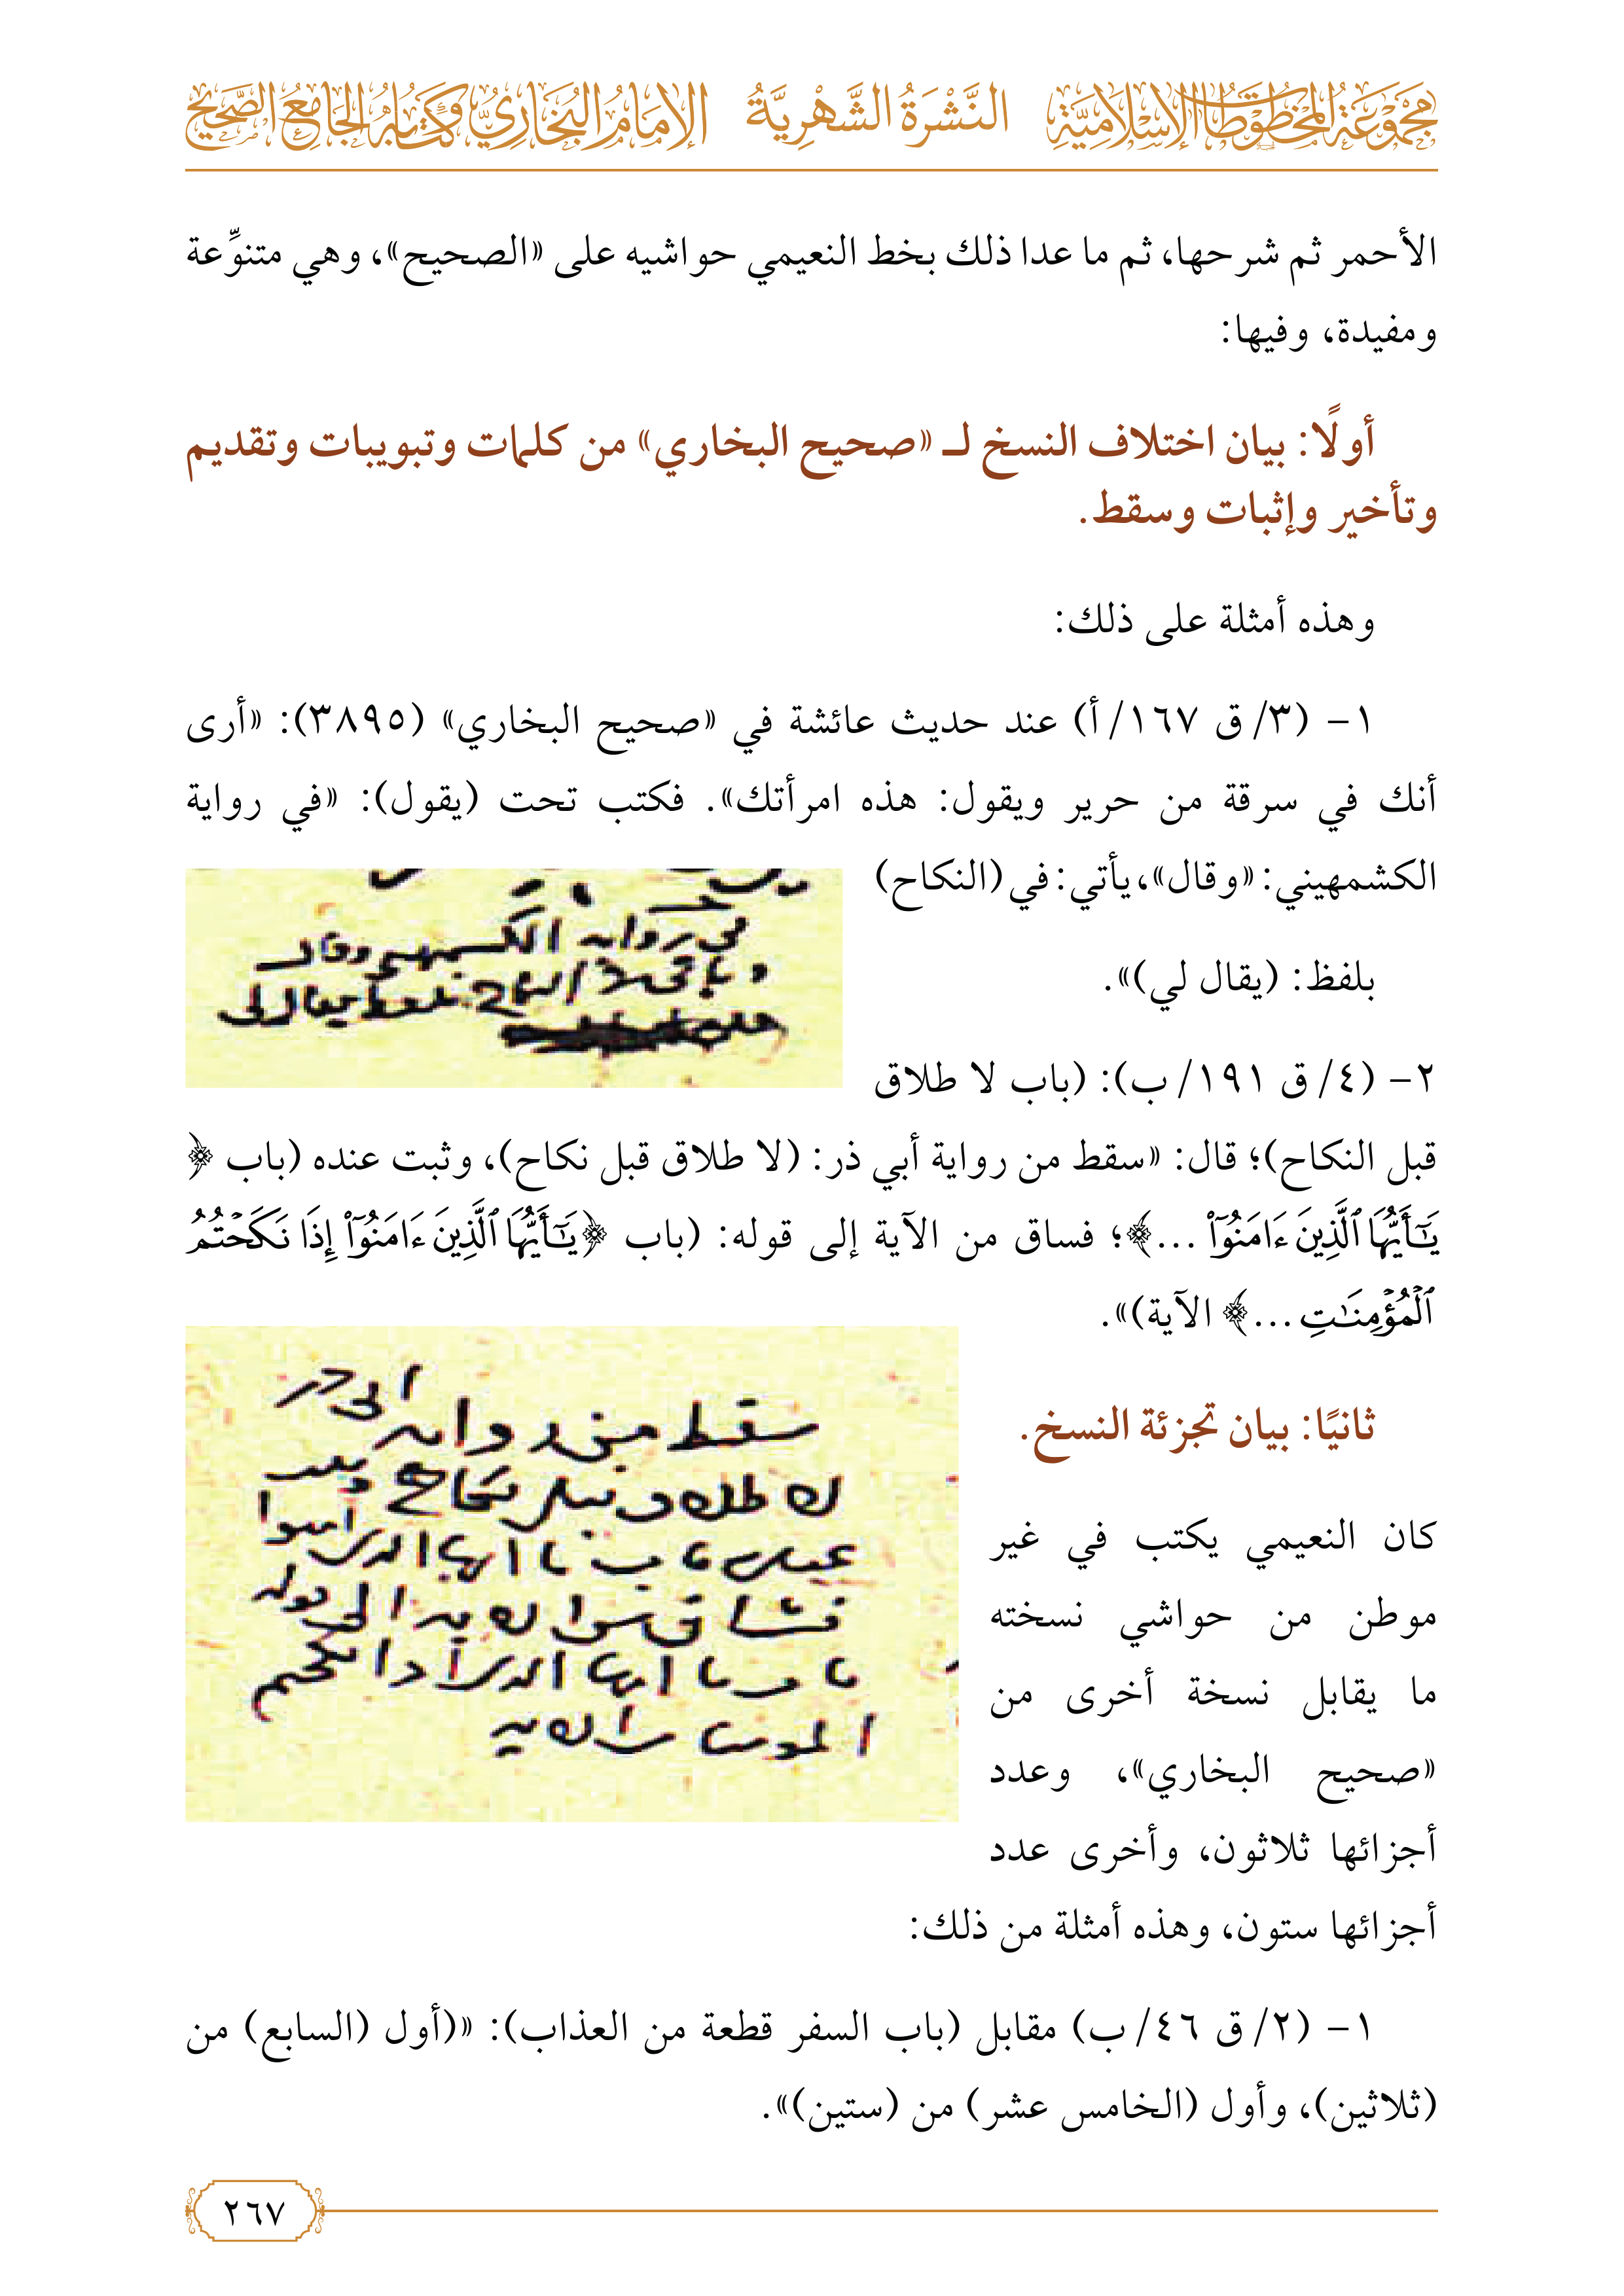 مَجْمُوعَةُ المَخْطُوطَاتِ الإِسْلَامِيَّةِ النَّشْرَةُ الشَّهْرِيَّةُ الإِمَامُ البُخَارِيُّ وَكِتَابُهُ الجَامِعُ الصَّحِيحُ
الأحمر ثم شرحها، ثم ما عدا ذلك بخط النعيمي حواشيه على «الصحيح»، وهي متنوِّعة
ومفيدة، وفيها:
أولًا: بيان اختلاف النسخ لـ «صحيح البخاري» من كلمات وتبويبات وتقديم
وتأخير وإثبات وسقط.
وهذه أمثلة على ذلك:
١- (٣/ ق ١٦٧/ أ) عند حديث عائشة في «صحيح البخاري» (٣٨٩٥): «أرى
أنك في سرقة من حرير ويقول: هذه امرأتك». فكتب تحت (يقول): «في رواية
الكشمهيني: «وقال»، يأتي: في (النكاح)
بلفظ: (يقال لي)».
في رواية الكشمهيني وقال
وياتي في النكاح بلفظ يقال لي
٢- (٤/ ق ١٩١/ ب): (باب لا طلاق
قبل النكاح)؛ قال: «سقط من رواية أبي ذر: (لا طلاق قبل نكاح)، وثبت عنده (باب ﴿
يَٰٓأَيُّهَا ٱلَّذِينَ ءَامَنُوٓاْ ...﴾؛ فساق من الآية إلى قوله: (باب ﴿يَٰٓأَيُّهَا ٱلَّذِينَ ءَامَنُوٓاْ إِذَا نَكَحۡتُمُ
ٱلۡمُؤۡمِنَٰتِ ...﴾ الآية)».
سقط من رواية ابي ذر
لا طلاق قبل نكاح وثبت
عنده باب يا ايها الذين امنوا
فساق من الاية الى قوله
باب يا ايها الذين اذا نكحتم
المومنات الاية
ثانيًا: بيان تجزئة النسخ.
كان النعيمي يكتب في غير
موطن من حواشي نسخته
ما يقابل نسخة أخرى من
«صحيح البخاري»، وعدد
أجزائها ثلاثون، وأخرى عدد
أجزائها ستون، وهذه أمثلة من ذلك:
١- (٢/ ق ٤٦/ ب) مقابل (باب السفر قطعة من العذاب): «(أول (السابع) من
(ثلاثين)، وأول (الخامس عشر) من (ستين)».
٢٦٧